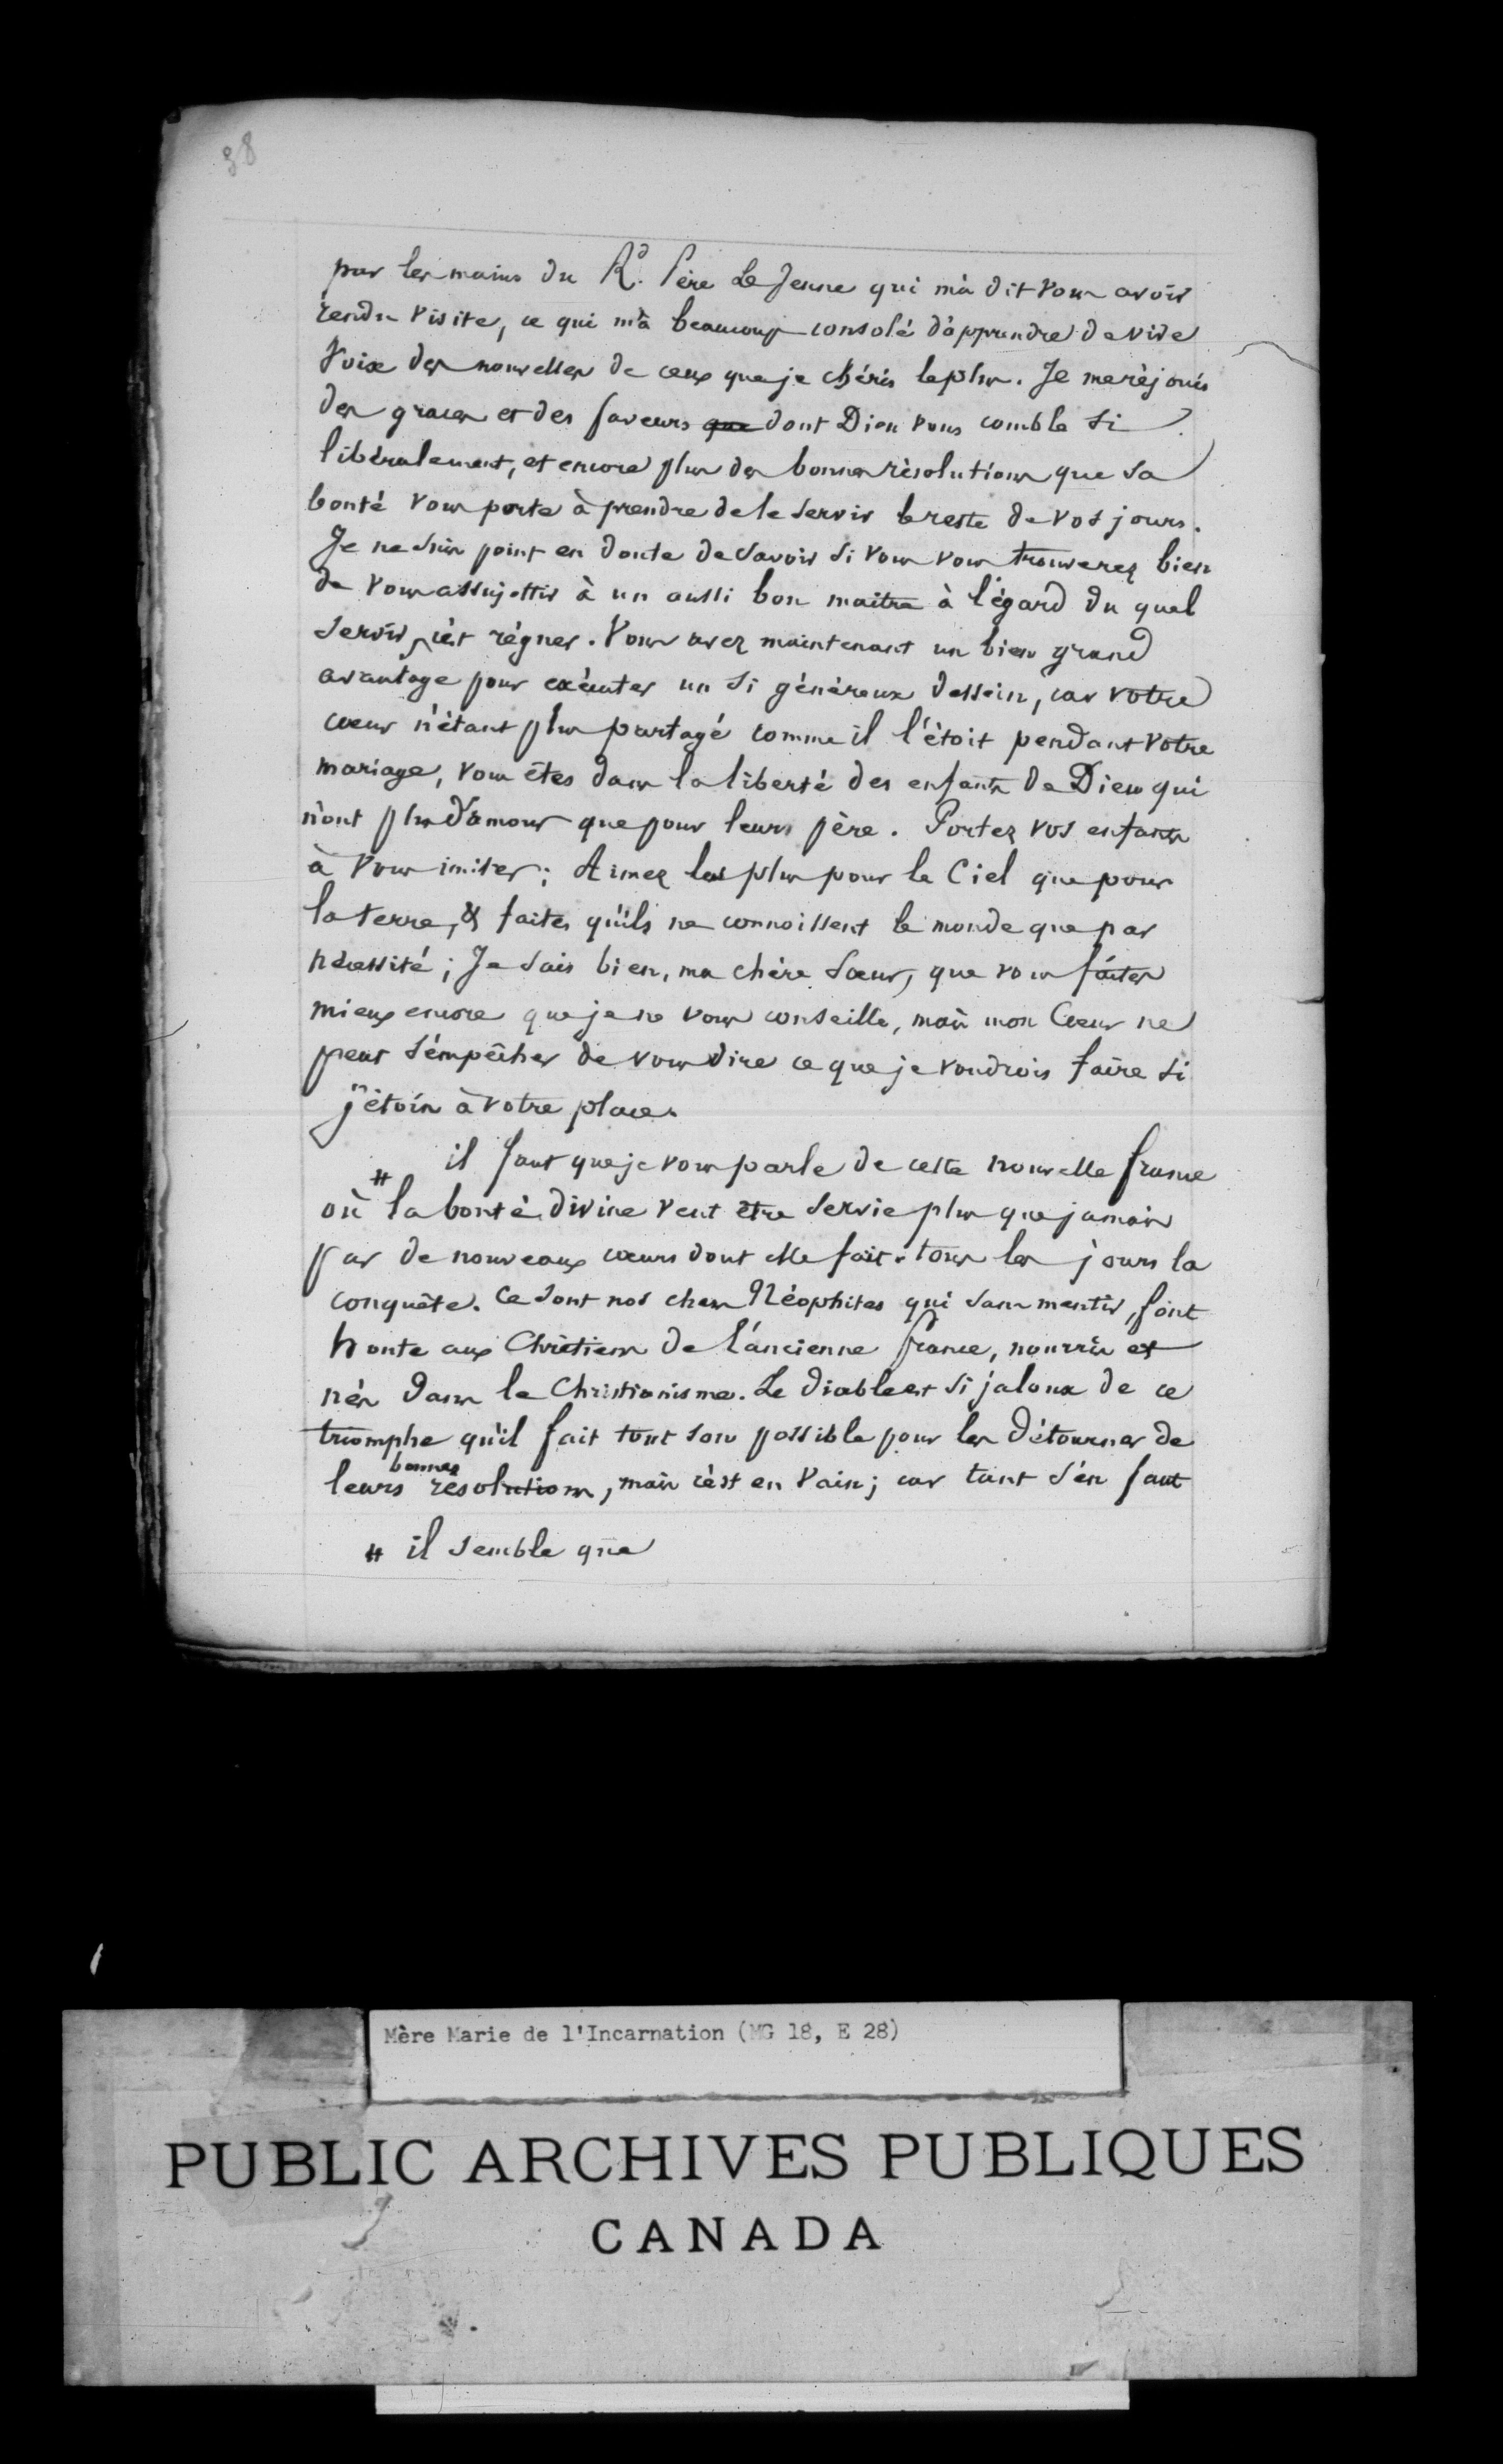 38
par les mains du Rd. Père Le Jeune qui m'a dit vous avoir
rendu visite, ce qui m'a beaucoup consolé d'apprendre de vive
voix des nouvelles de ceux que je chéris le plus. Je me réjouis
des graces et des faveurs que dont Dieu vous comble si
libéralement, et encore plus des bonnes résolutions que sa
bonté vous porte à prendre de le servir le reste de vos jours.
Je ne suis point en doute de savoir si vous vous trouverez bien
de vous assujettir à un aussi bon maitre à l'égard du quel
servir, c'est régner. Vous avez maintenant un bien grand
avantage pour exécuter un si généreux dessein, car votre
cœur n'étant plus partagé comme il l'étoit pendant votre
mariage, vous êtes dans la liberté des enfants de Dieu qui
n'ont plus d'amour que pour leurs père. Portez vos enfants
à vous imiter; Aimez les plus pour le Ciel que pour
la terre, & faites qu'ils ne connoissent le monde que par
nécessité; Je sais bien, ma chère Sœur, que vous faites
mieux encore que je ne vous conseille, mais mon Cœur ne
peut s'empêcher de vous dire ce que je voudrois faire si
j'étois à votre place.
il faut que je vous parle de cette nouvelle france
où # la bonté divine veut être servie plus que jamais
par de nouveaux cœurs dont elle fait tous les jours la
conquête. Ce sont nos chers Néophites qui sans mentir, font
honte aux Chrétiens de l'ancienne france, nourris et
nés dans le Christianisme. Le diable est si jaloux de ce
triomphe qu'il fait tout son possible pour les détourner de
leurs bonnes résolutions, mais c'est en vain; car tant s'en faut
# il semble que
Mère Marie de l'Incarnation (MG 18, E 28)
PUBLIC ARCHIVES PUBLIQUES
CANADA